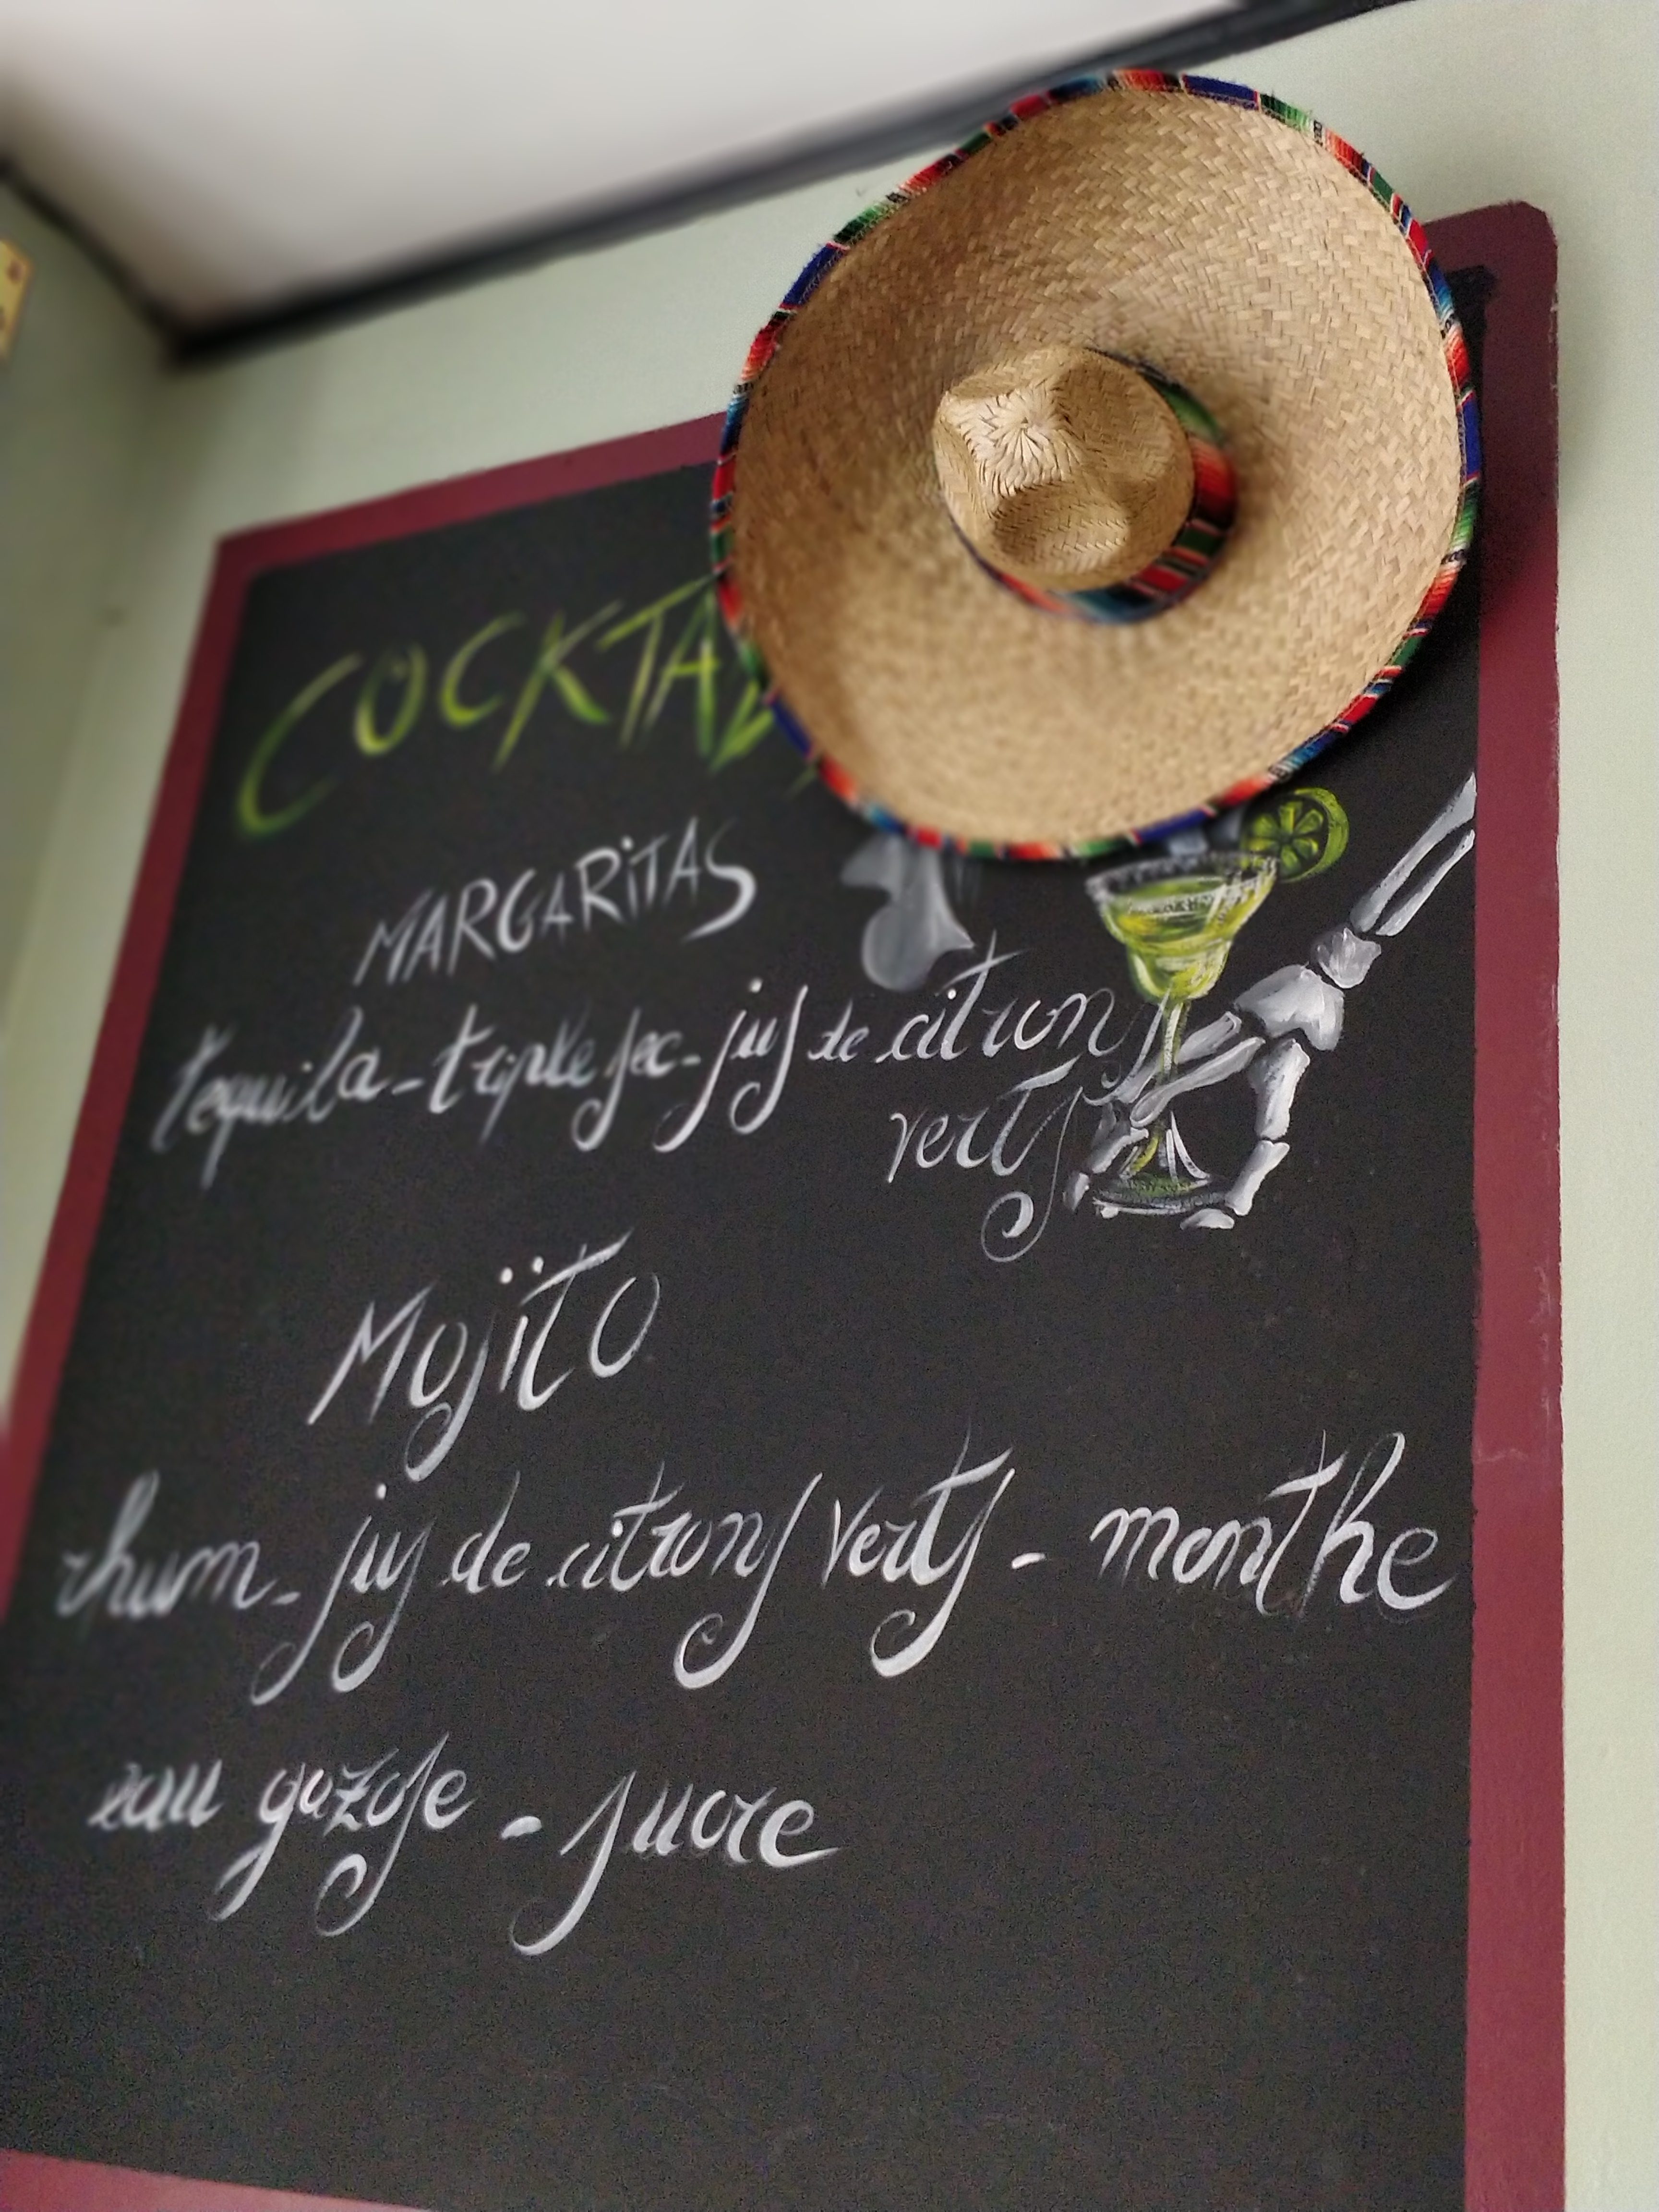 COCKTAI
MARGARiTAS
Tequila - triple sec - jus de citrons
verts
Mojïto
rhum - jus de citrons verts - monthe
eau gazose - sucre